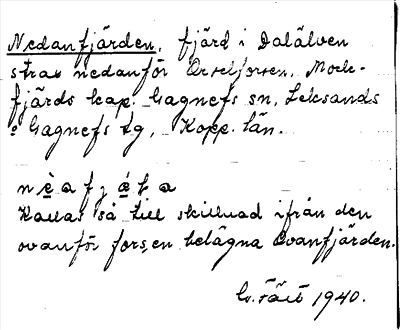 Nedanfjärden, fjärd i Dalälven
strax nedanför forsen, Mock-
fjärds kap. Gagnefs sn, Leksands
o Gagnefs tg, Kopp. län.
Kallas så till skillnad ifrån den
ovanför forsen belägna Ovanfjärden.
1940.